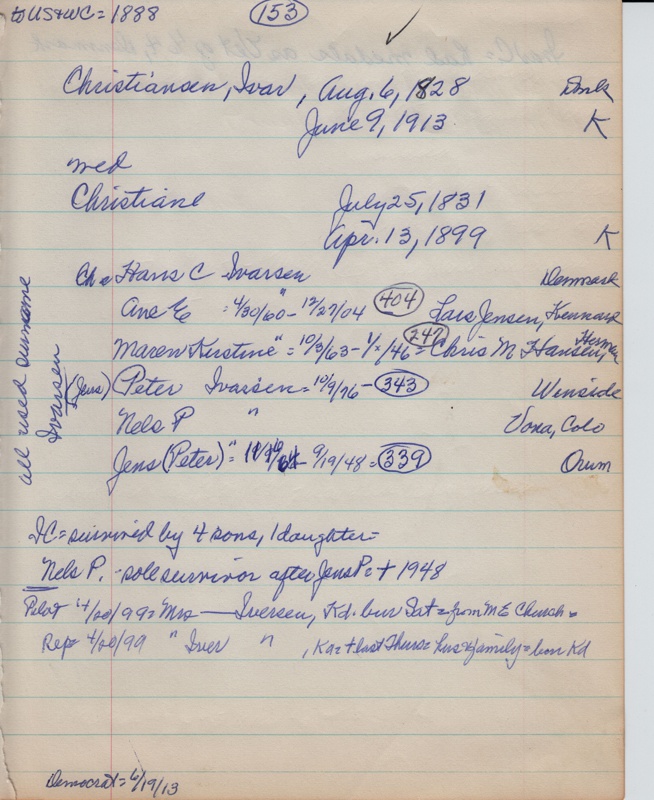 to US & WC = 1888
153
Christiansen, Ivar, Aug. 6, 1828 Dmk
June 9, 1913 K
med
Christiane July 25, 1831
Apr. 13, 1899 K
Ch = Hans C Ivarsen Denmark
Ane E " = 4/30/60 - 12/27/04 404 Lars Jensen, Kennard
Maren Kirstine " = 10/3/63 - 1/ /46 = 247 Chris M Hansen, Herman
(Jens) Peter Ivarsen = 10/9/76 - 343 Winside
Nels P " Vona, Colo
Jens (Peter) " = - 9/19/48 = 339 Orum
all used surname
Ivarsen
IC = survived by 4 sons, 1 daughter =
Nels P. - sole survivor after Jens P = + 1948
Pilot 4/20/99 = Mrs — Iversen, Kd. bur Sat = from M E Church =
Rep 4/20/99 " Iver " , Ka = + last Thurs = hus & family = bur Kd
Democrat = 6/19/13